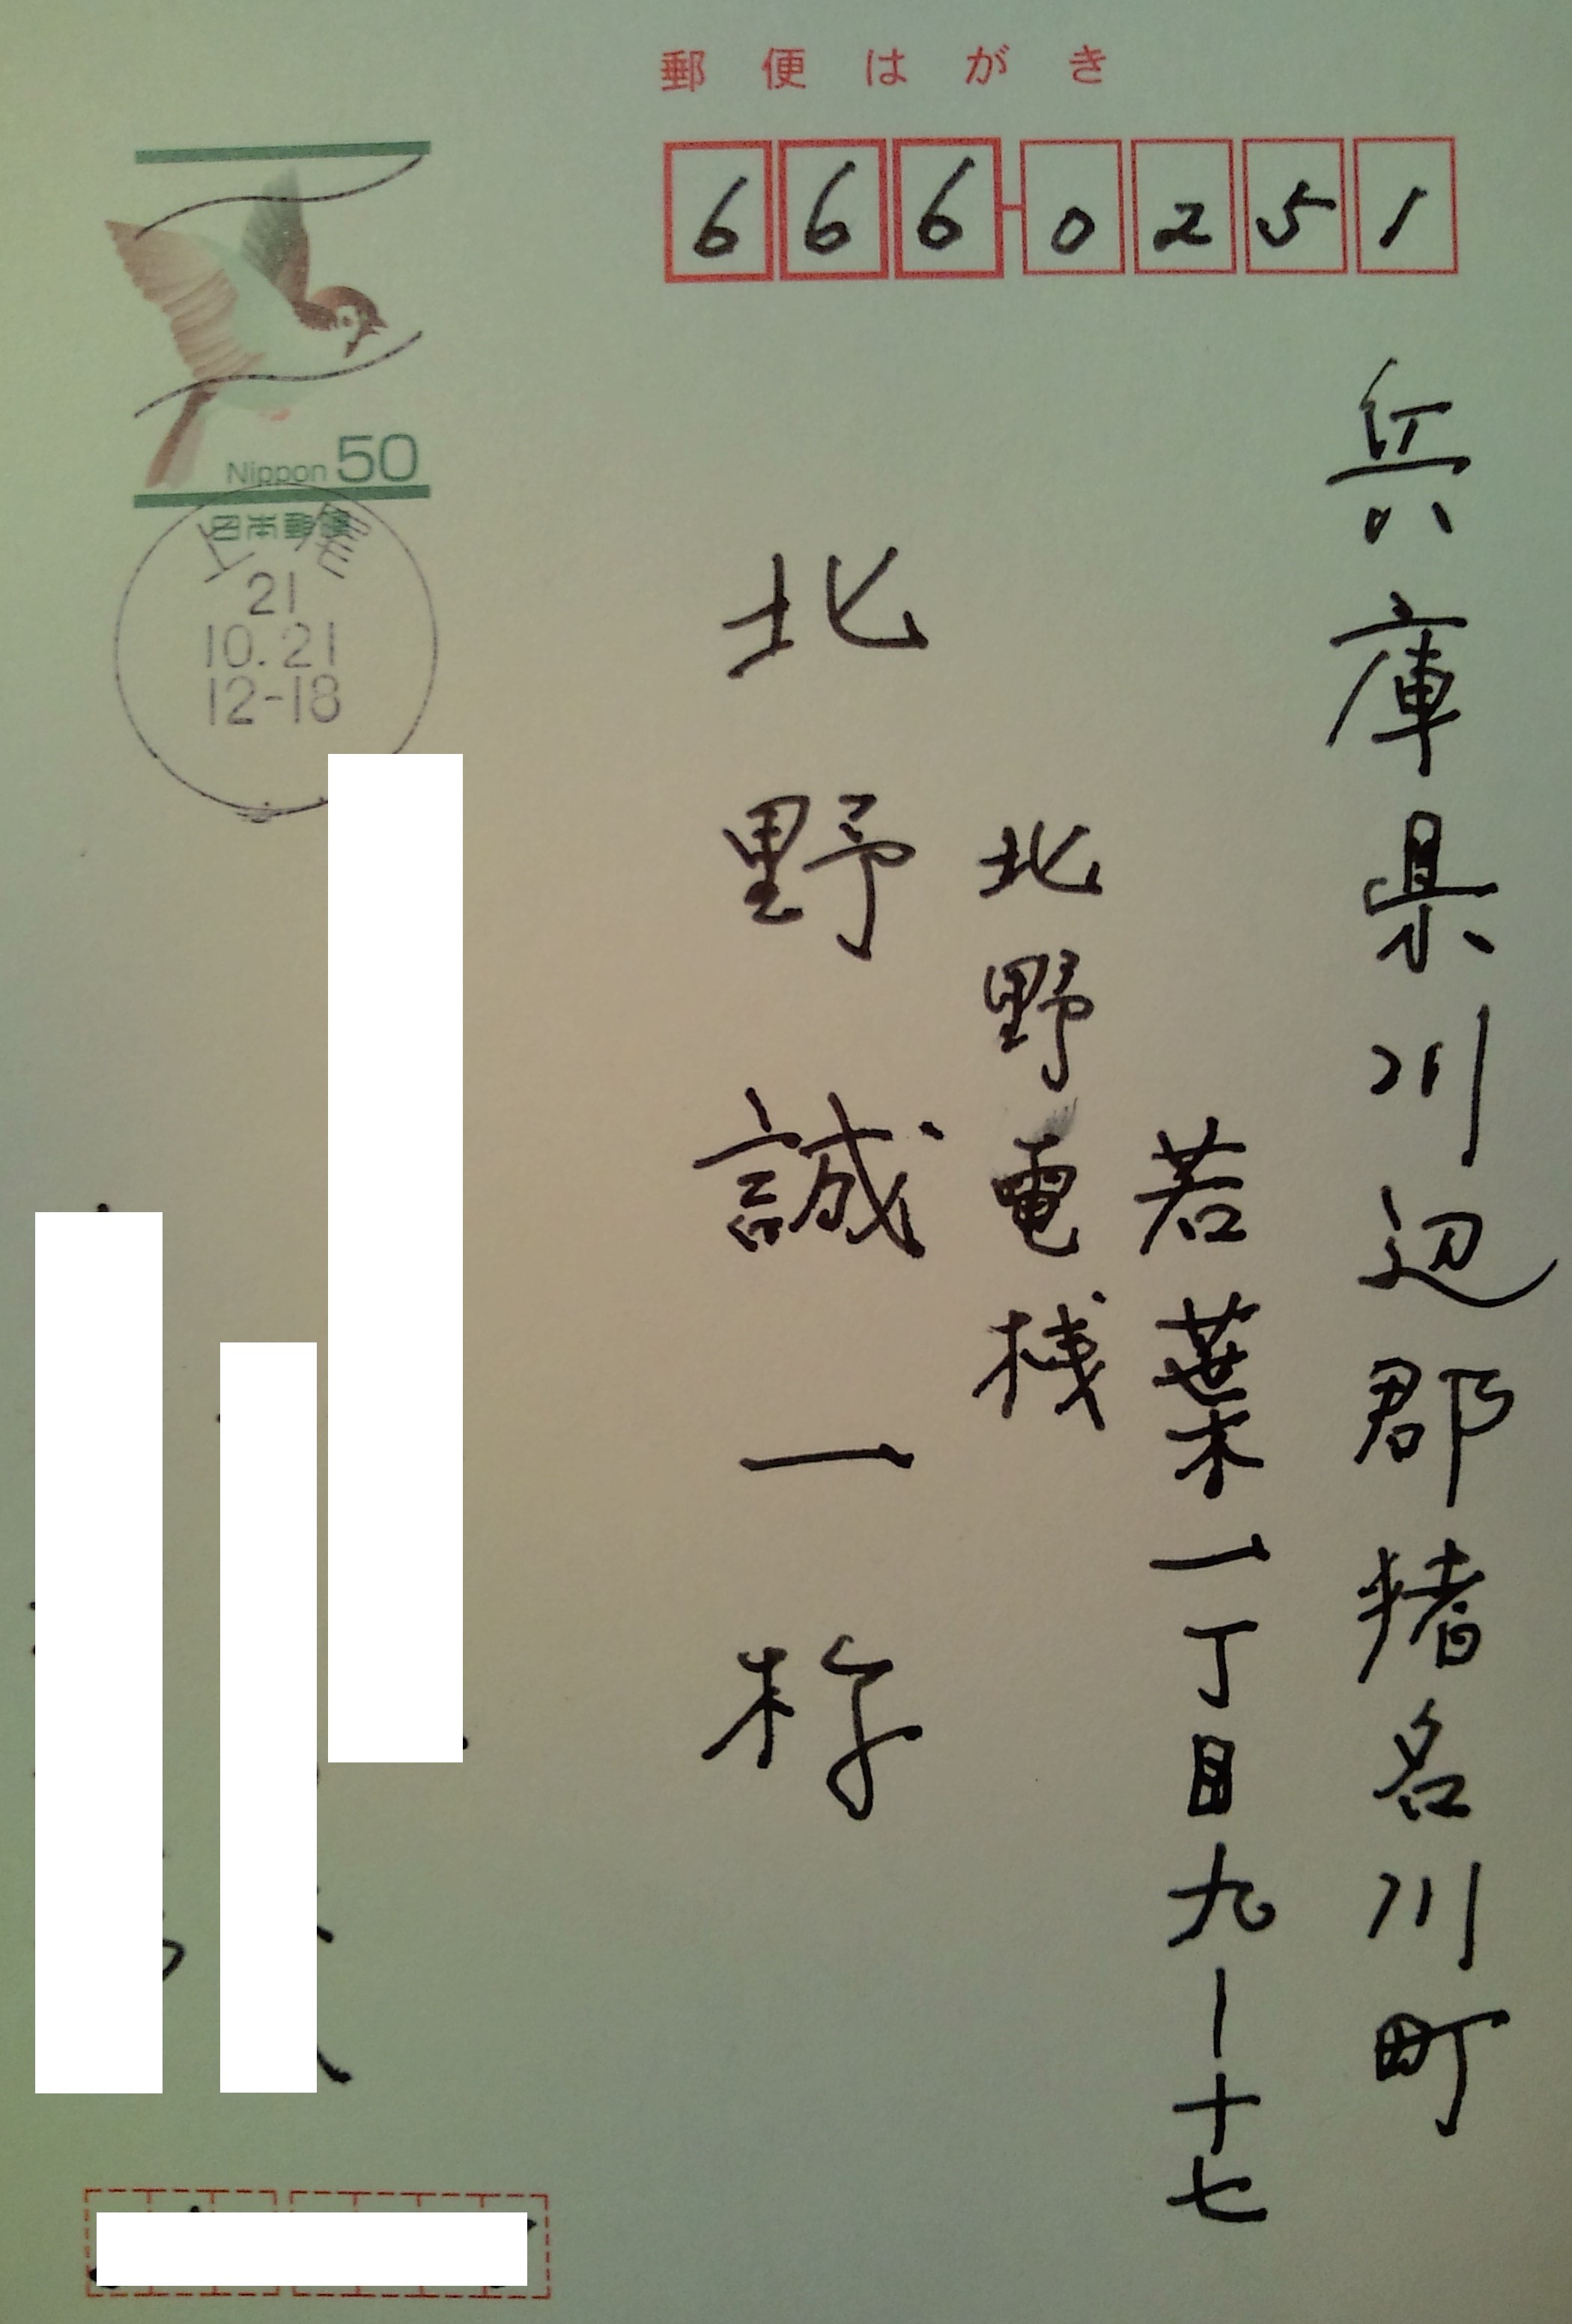 郵便はがき
666-0251
兵庫県川辺郡猪名川町
若葉一丁目九-十七
北野電機
北野誠一様
Nippon 50
日本郵便
上尾
21
10.21
12-18